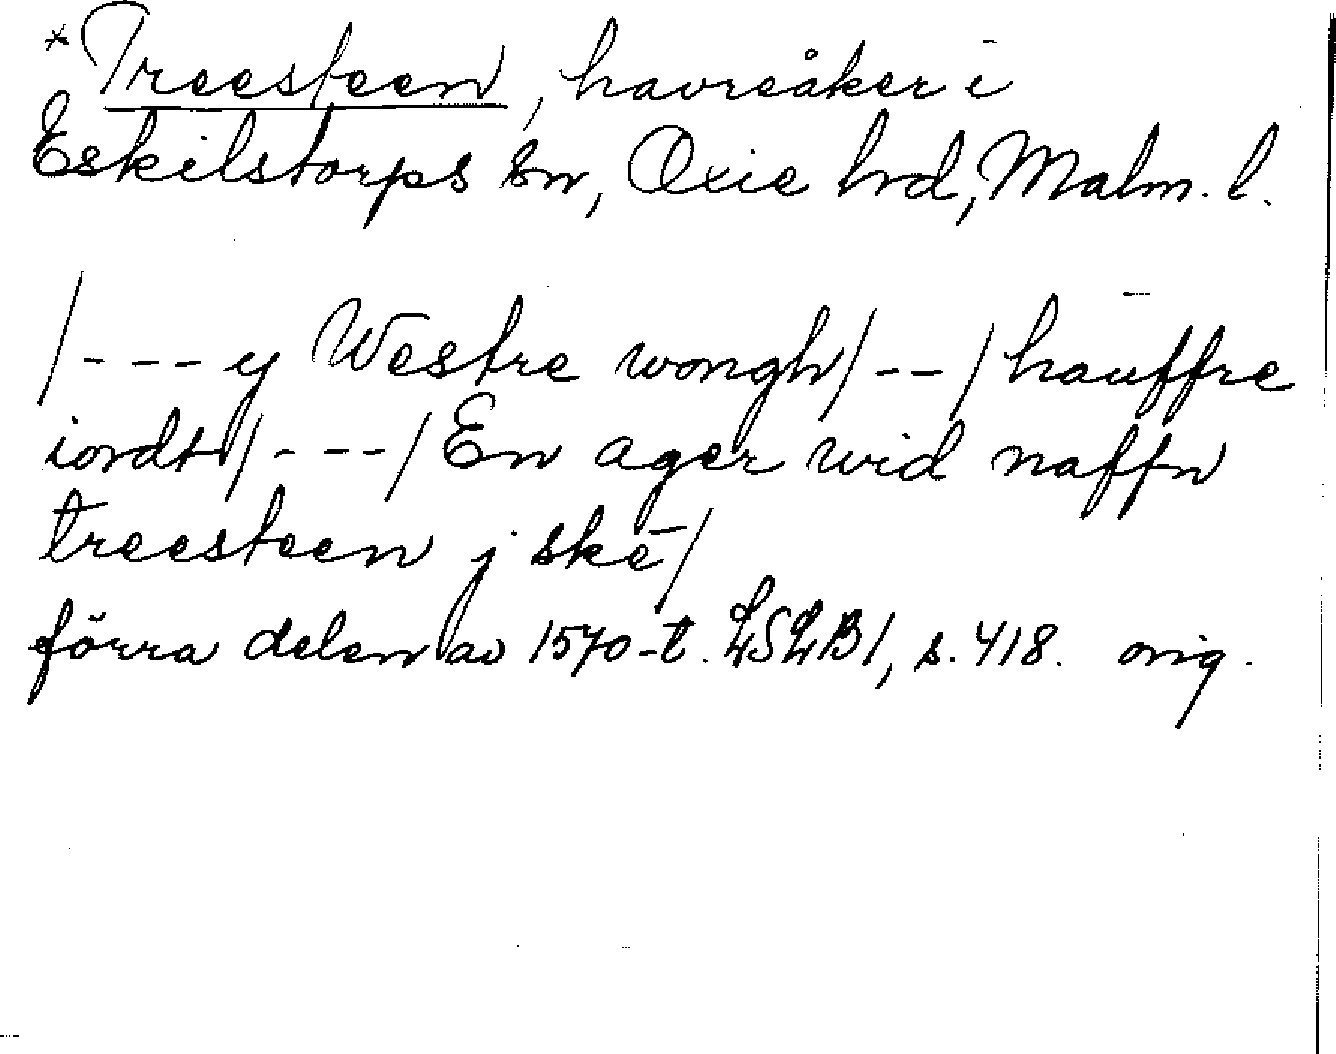 * Treesteen, havreåker i
Eskilstorps sn, Oxie hd, Malm. l.
/---y Westre wongh/--/hauffre
iordt/---/En ager wid naffn
treesteen j ske/
förra delen av 1570-t. LSLB1, s. 418. orig.